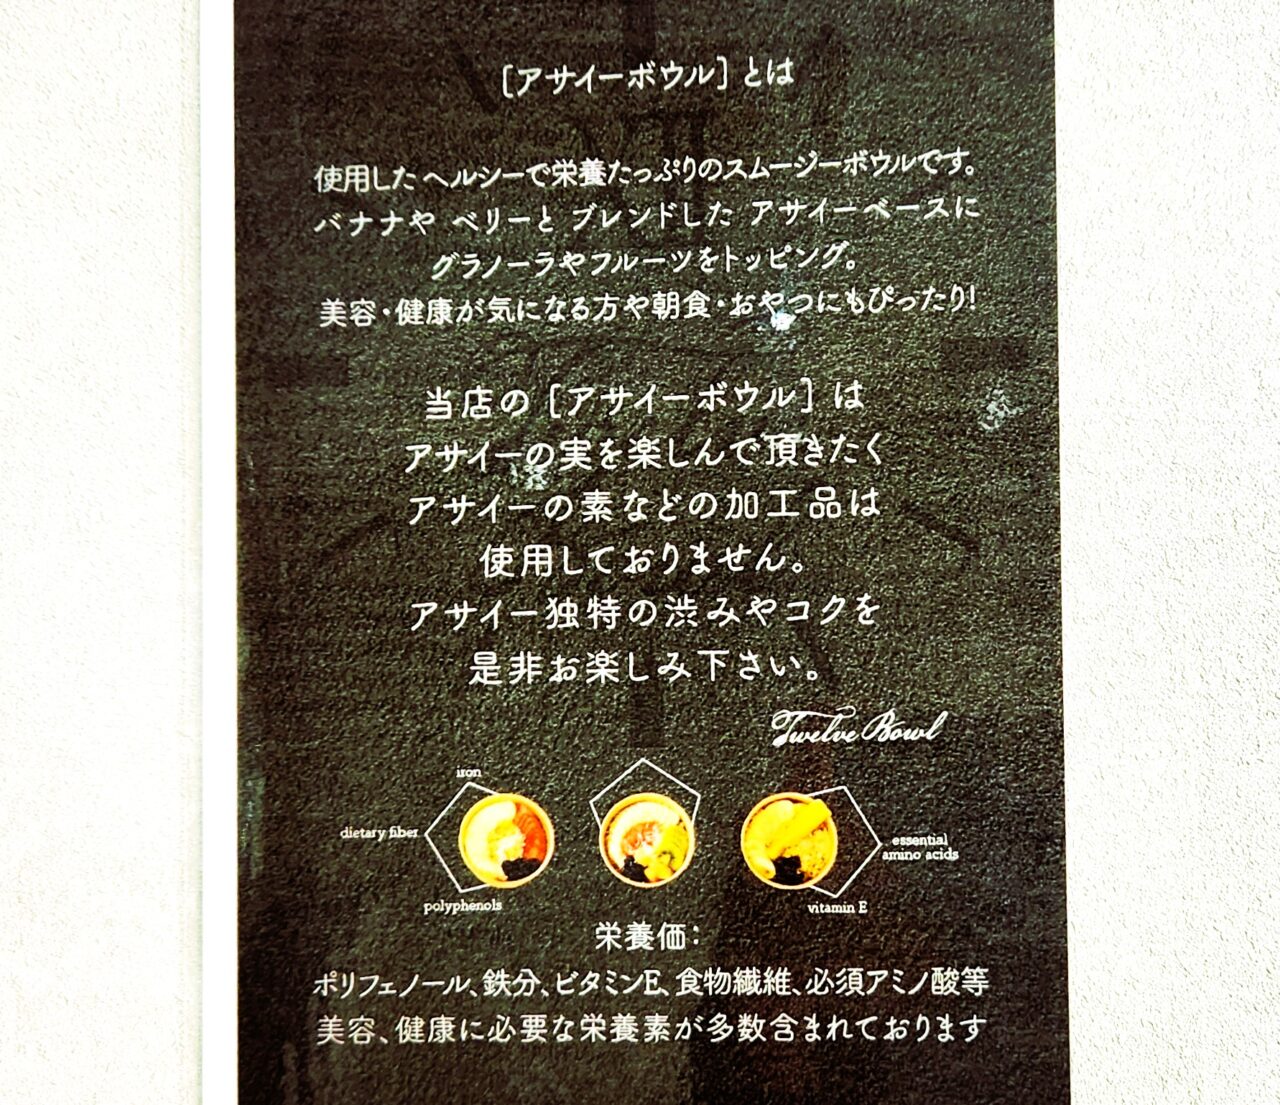 [アサイーボウル]とは
使用したヘルシーで栄養たっぷりのスムージーボウルです。
バナナや ベリーと ブレンドした アサイーベースに
グラノーラやフルーツをトッピング。
美容・健康が気になる方や朝食・おやつにもぴったり!
当店の[アサイーボウル]は
アサイーの実を楽しんで頂きたく
アサイーの素などの加工品は
使用しておりません。
アサイー独特の渋みやコクを
是非お楽しみ下さい。
Twelve Bowl
iron
dietary fiber
polyphenols
essential
amino acids
vitamin E
栄養価:
ポリフェノール、鉄分、ビタミンE、食物繊維、必須アミノ酸等
美容、健康に必要な栄養素が多数含まれております